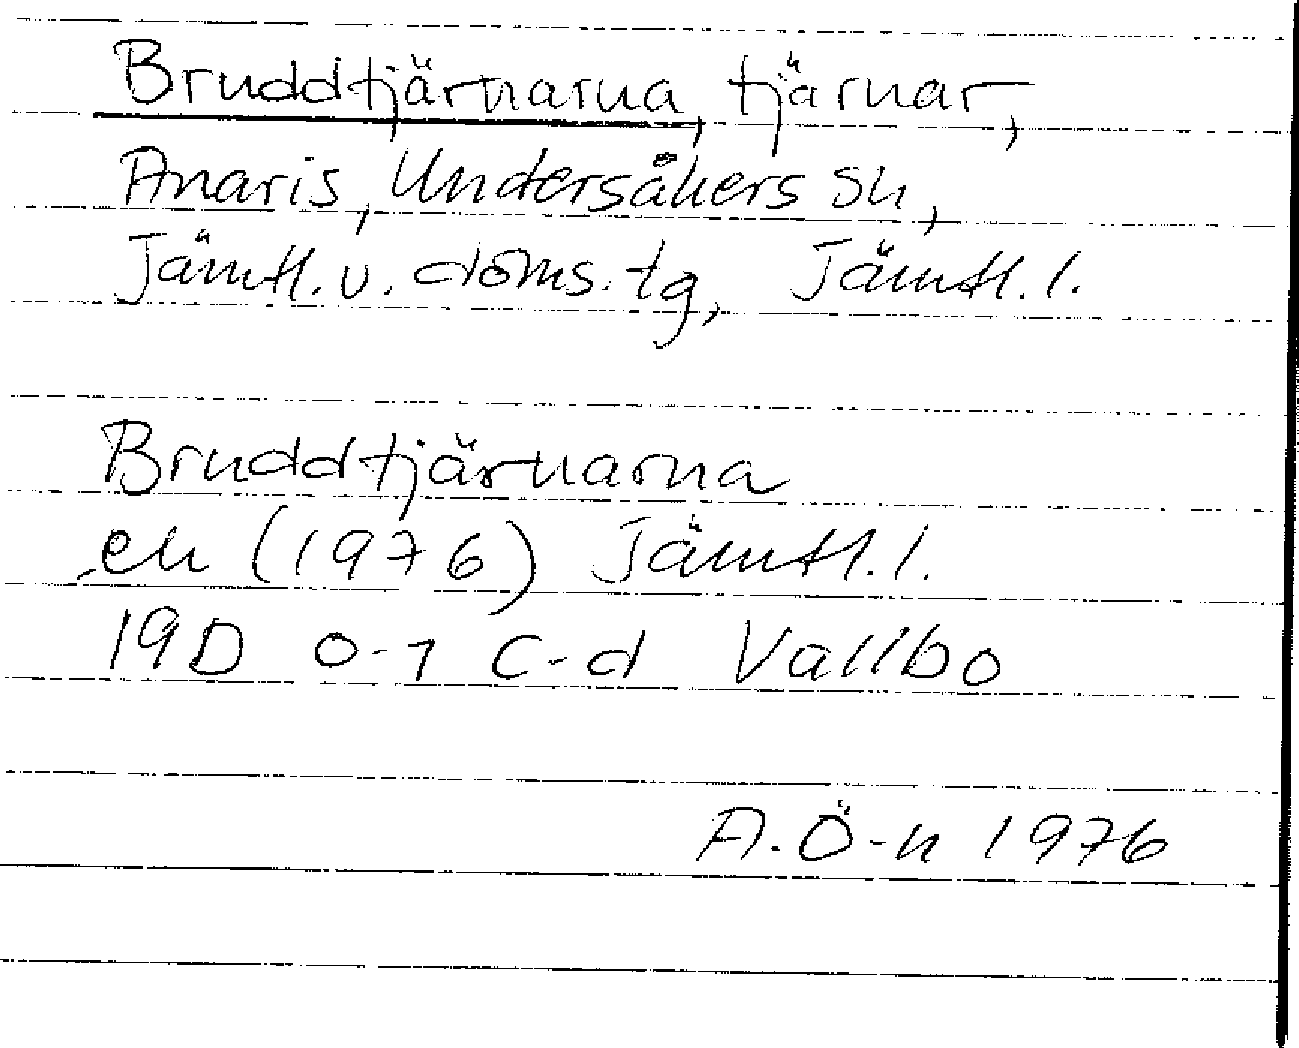 Bruddtjärnarna, tjärnar,
Anaris, Undersåkers sk,
Jämtl. v. doms. tg, Jämtl. l.
Bruddtjärnarna
ek (1976) Jämtl. l.
19D 0-1 c-d Vallbo
A.Ö-n 1976